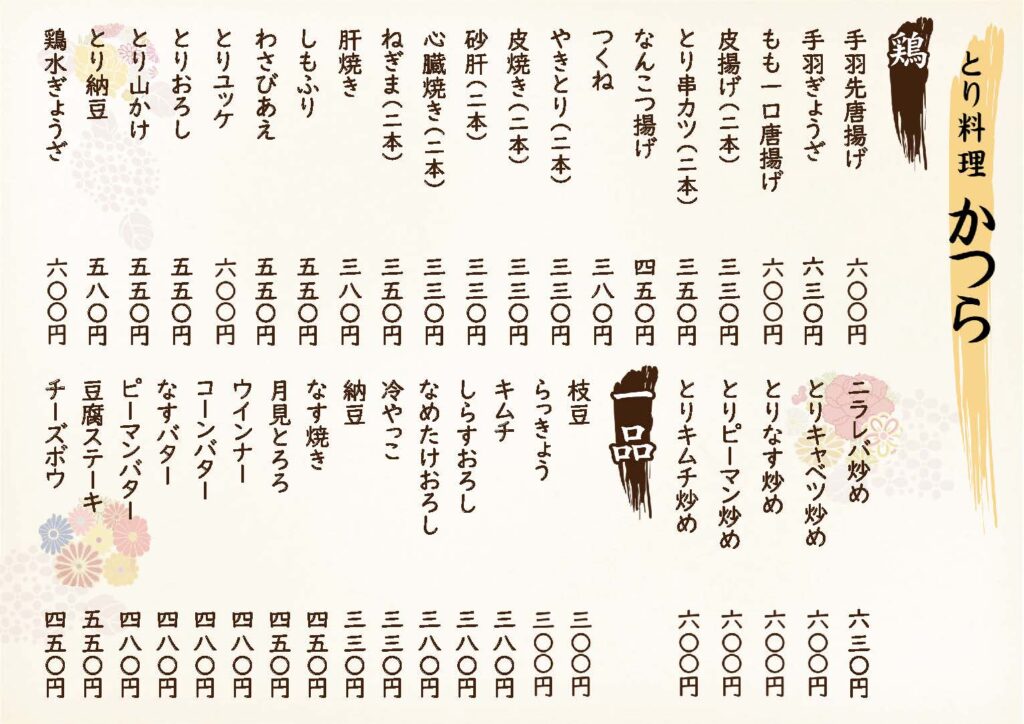 とり料理 かつら
鶏
手羽先唐揚げ 六〇〇円
手羽ぎょうざ 六三〇円
もも一口唐揚げ 六〇〇円
皮揚げ(二本) 三三〇円
とり串カツ(二本) 三五〇円
なんこつ揚げ 四五〇円
つくね 三八〇円
やきとり(二本) 三三〇円
皮焼き(二本) 三三〇円
砂肝(二本) 三三〇円
心臓焼き(二本) 三三〇円
ねぎま(二本) 三五〇円
肝焼き 三八〇円
しもふり 五五〇円
わさびあえ 五五〇円
とりユッケ 六〇〇円
とりおろし 五五〇円
とり山かけ 五五〇円
とり納豆 五八〇円
鶏水ぎょうざ 六〇〇円
ニラレバ炒め 六三〇円
とりキャベツ炒め 六〇〇円
とりなす炒め 六〇〇円
とりピーマン炒め 六〇〇円
とりキムチ炒め 六〇〇円
一品
枝豆 三〇〇円
らっきょう 三〇〇円
キムチ 三八〇円
しらすおろし 三八〇円
なめたけおろし 三八〇円
冷やっこ 三三〇円
納豆 三三〇円
なす焼き 四五〇円
月見とろろ 四五〇円
ウインナー 四八〇円
コーンバター 四八〇円
なすバター 四八〇円
ピーマンバター 四八〇円
豆腐ステーキ 五五〇円
チーズボウ 四五〇円